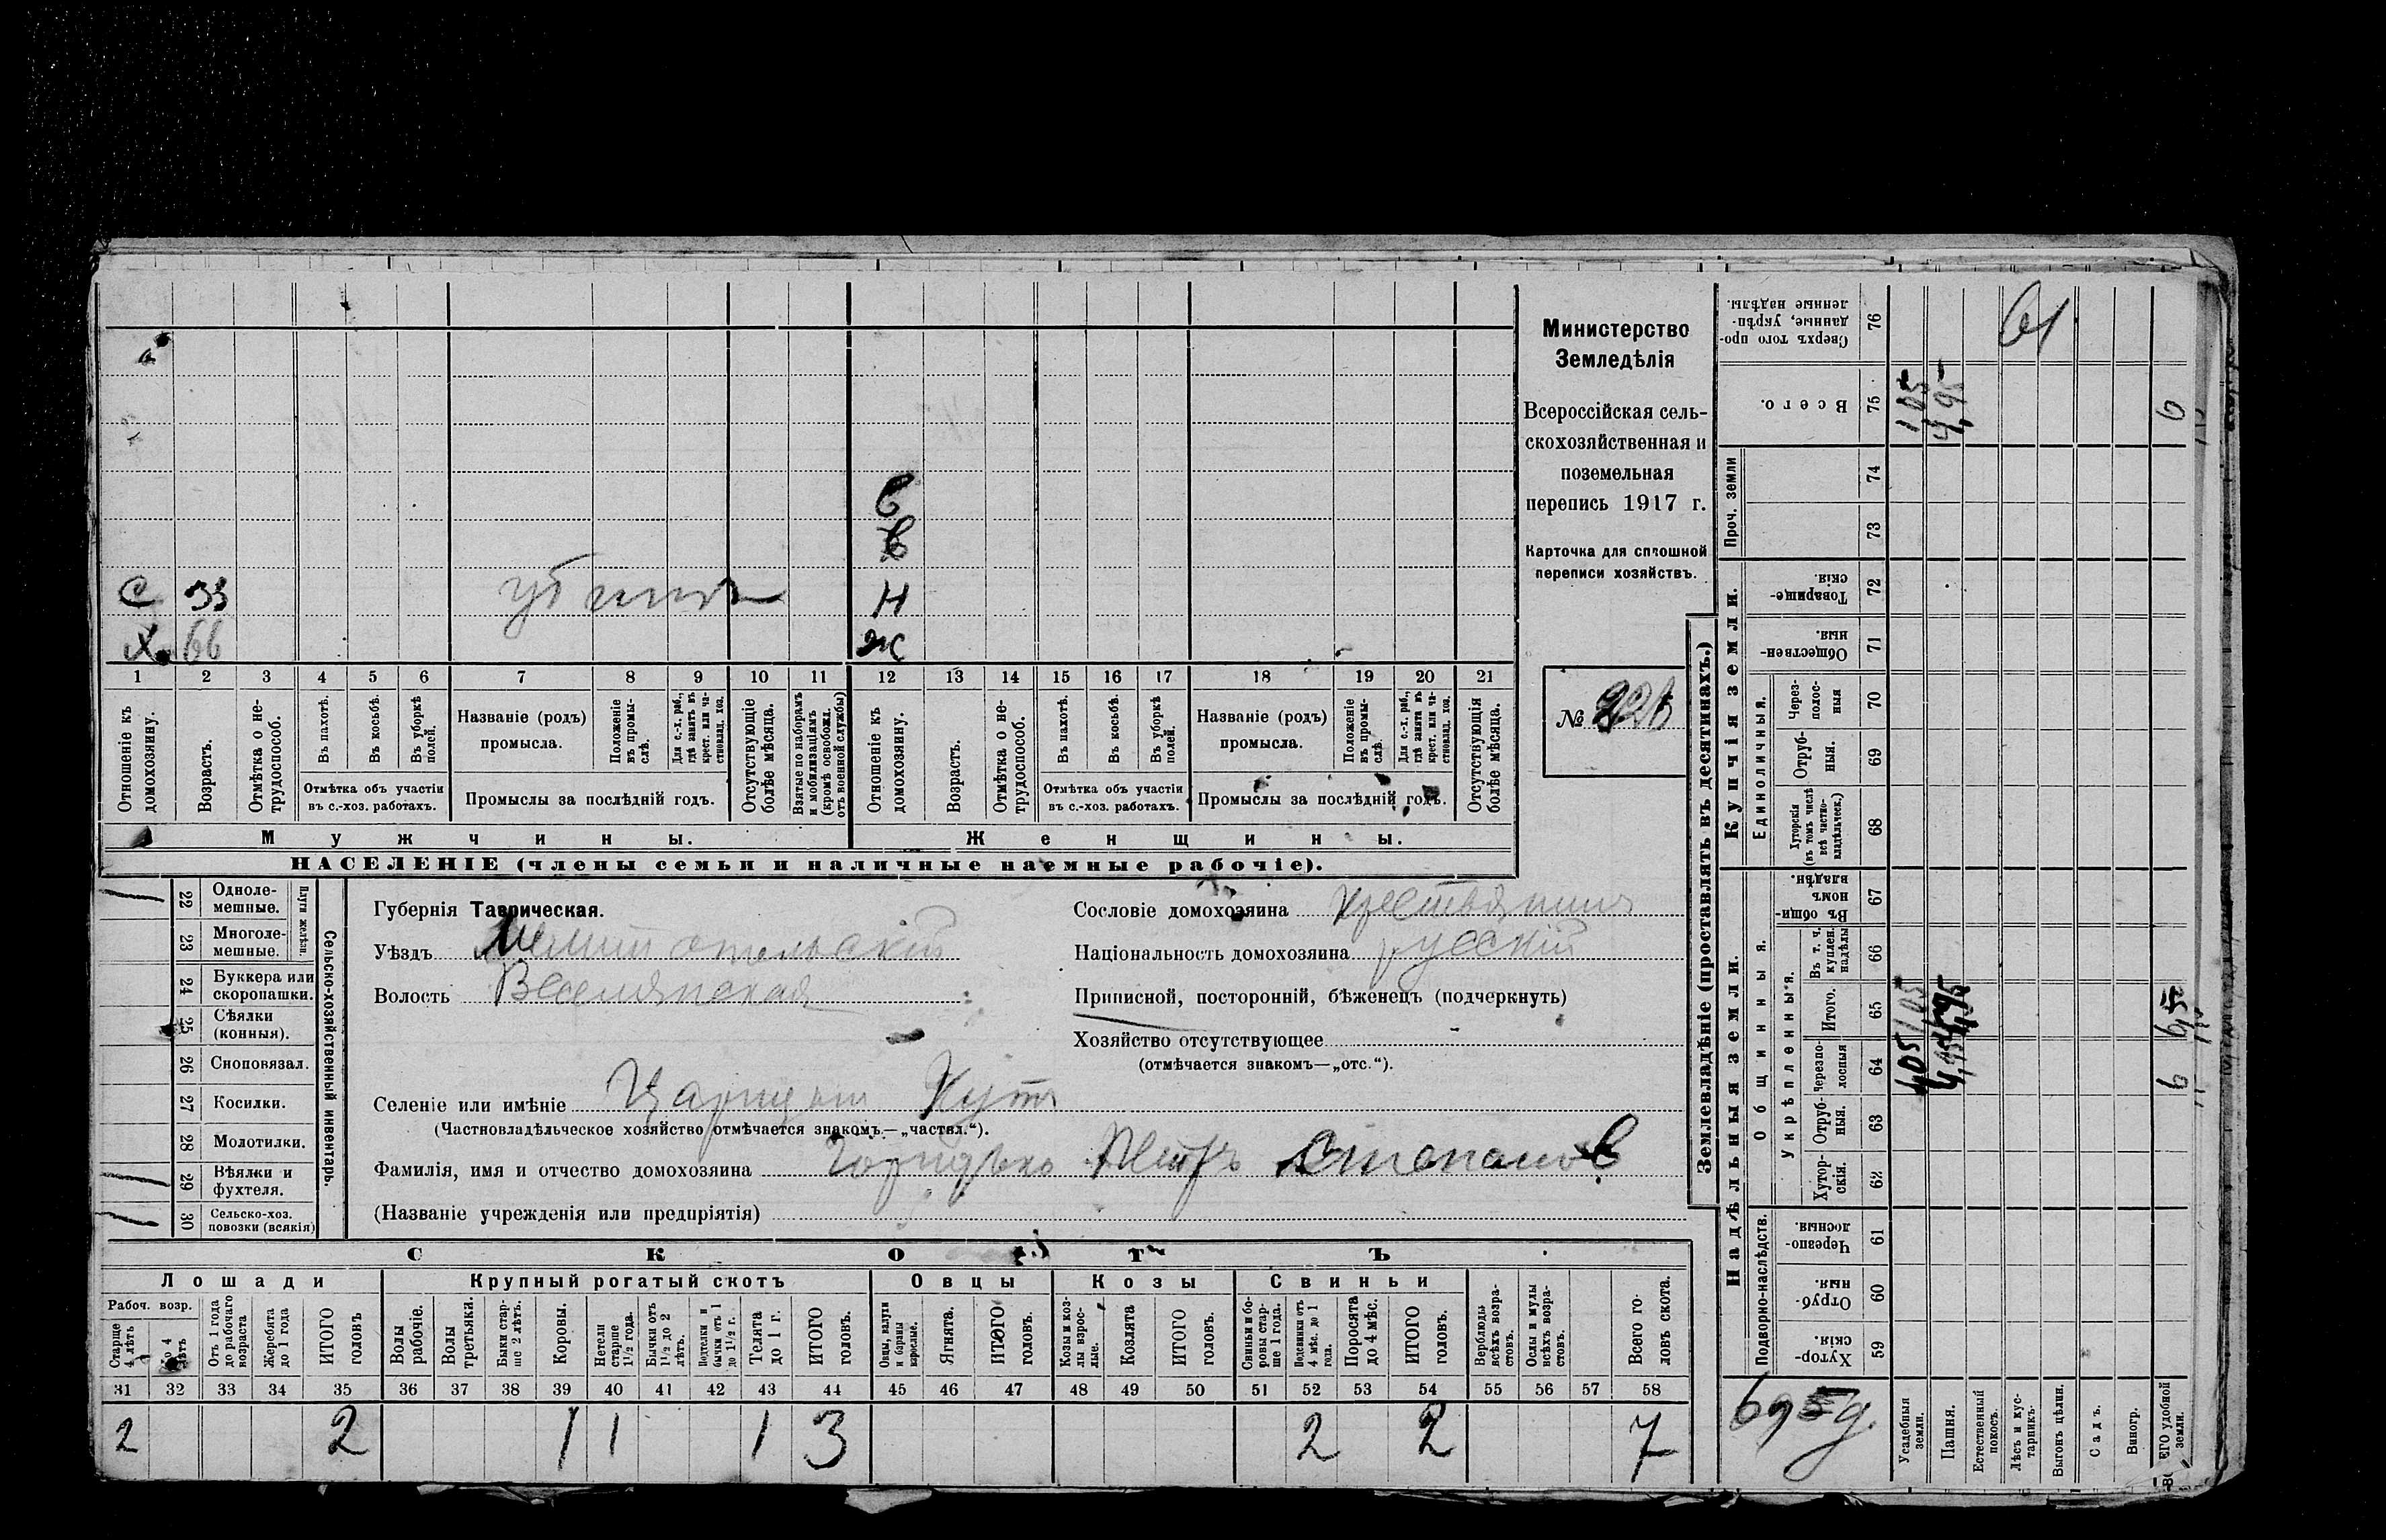 С 33 убитъ Н
Х. 66 Ж
В
В
1 2 3 4 5 6 7 8 9 10 11 12 13 14 15 16 17 18 19 20 21
Отношеніе къ домохозяину.
Возрастъ.
Отмѣтка о не-
трудоспособ.
Въ пахотѣ.
Въ косьбѣ.
Въ уборкѣ полей.
Отмѣтка объ участіи
въ с.-хоз. работахъ.
Названіе (родъ)
промысла.
Положеніе въ промы-
слѣ.
Для с.-х. раб., гдѣ занятъ въ крест. или ча-
стновлад. хоз.
Промыслы за послѣдній годъ.
Отсутствующіе болѣе мѣсяца.
Взятые по наборамъ и мобилизаціямъ (кромѣ освобожд. отъ военной службы)
Отношеніе къ домохозяину.
Возрастъ.
Отмѣтка о не-
трудоспособ.
Въ пахотѣ.
Въ косьбѣ.
Въ уборкѣ полей.
Отмѣтка объ участіи
въ с.-хоз. работахъ.
Названіе (родъ)
промысла.
Положеніе въ промы-
слѣ.
Для с.-х. раб., гдѣ занятъ въ крест. или ча-
стновлад. хоз.
Промыслы за послѣдній годъ.
Отсутствующія болѣе мѣсяца.
Мужчины. Женщины.
НАСЕЛЕНІЕ (члены семьи и наличные наемные рабочіе).
Министерство
Земледѣлія
Всероссійская сель-
скохозяйственная и
поземельная
перепись 1917 г.
Карточка для сплошной
переписи хозяйствъ.
№
22 Одноле-
мешные.
23 Многоле-
мешные.
Плуги желѣзн.
24 Буккера или
скоропашки.
25 Сѣялки
(конныя).
26 Сноповязал.
27 Косилки.
28 Молотилки.
29 Вѣялки и
фухтеля.
30 Сельско-хоз.
повозки (всякія)
Сельско-хозяйственный инвентарь.
Губернія Таврическая.
Уѣздъ Мелитопольскій
Волость Веселянская
Сословіе домохозяина крестьянинъ
Національность домохозяина русскій
Приписной, посторонній, бѣженецъ (подчеркнуть)
Хозяйство отсутствующее
(отмѣчается знакомъ—„отс.“).
Селеніе или имѣніе Царицынъ Кутъ
(Частновладѣльческое хозяйство отмѣчается знакомъ—„частвл.“).
Фамилія, имя и отчество домохозяина Петръ Степановъ
(Названіе учрежденія или предпріятія)
СКОТЪ
Лошади Крупный рогатый скотъ Овцы Козы Свиньи
Рабоч. возр.
Старше 4 лѣтъ
До 4 лѣтъ
Отъ 1 года до рабочаго возраста
Жеребята до 1 года
ИТОГО головъ
Волы рабочіе.
Волы третьяки.
Быки стар-
ше 2 лѣтъ.
Коровы.
Нетели старше 1½ года.
Бычки отъ 1½ до 2 лѣтъ.
Подтелки и бычки отъ 1 до 1½ г.
Телята до 1 г.
ИТОГО головъ.
Овцы, валухи и бараны взрослые.
Ягнята.
ИТОГО головъ.
Козы и коз-
лы взрос-
лые.
Козлята
ИТОГО головъ.
Свиньи и бо-
ровы стар-
ше 1 года.
Подсвинки отъ 4 мѣс. до 1 года.
Поросята до 4 мѣс.
ИТОГО головъ.
Верблюды всѣхъ возра-
стовъ.
Ослы и мулы всѣхъ возра-
стовъ.
Всего го-
ловъ скота.
31 32 33 34 35 36 37 38 39 40 41 42 43 44 45 46 47 48 49 50 51 52 53 54 55 56 57 58
2 2 1 1 1 3 2 2 7
Землевладѣніе (проставлять въ десятинахъ.)
Купчія земли.
Надѣльныя земли.
Сверхъ того про-
данные, укрѣп-
ленные надѣлы. 76
61
Всего. 75 1,05 4,95 6
Проч. земли 74
73
Товарище-
скія. 72
Обществен-
ныя. 71
Единоличныя.
Через-
полос-
ныя 70
Отруб-
ныя. 69
Хуторскія (въ томъ числѣ всѣ частно-
владѣльческ.) 68
Общинныя.
Въ общи-
номъ владѣн. 67
Укрѣпленныя.
Въ т. ч. куплен. надѣлы 66
Итого. 65 1,05 4,95
Черезпо-
лосныя 64 1,05 4,95 6
Отруб-
ныя. 63
Хутор-
скія. 62
Подворно-наслѣдств.
Черезпо-
лосныя. 61
Отруб-
ныя. 60
Хутор-
скія 59
Усадебныя земли.
Пашня.
Естественный покосъ.
Лѣсъ и кус-
тарникъ.
Выгонъ цѣлин.
Садъ.
Виногр.
ЕГО удобной земли.